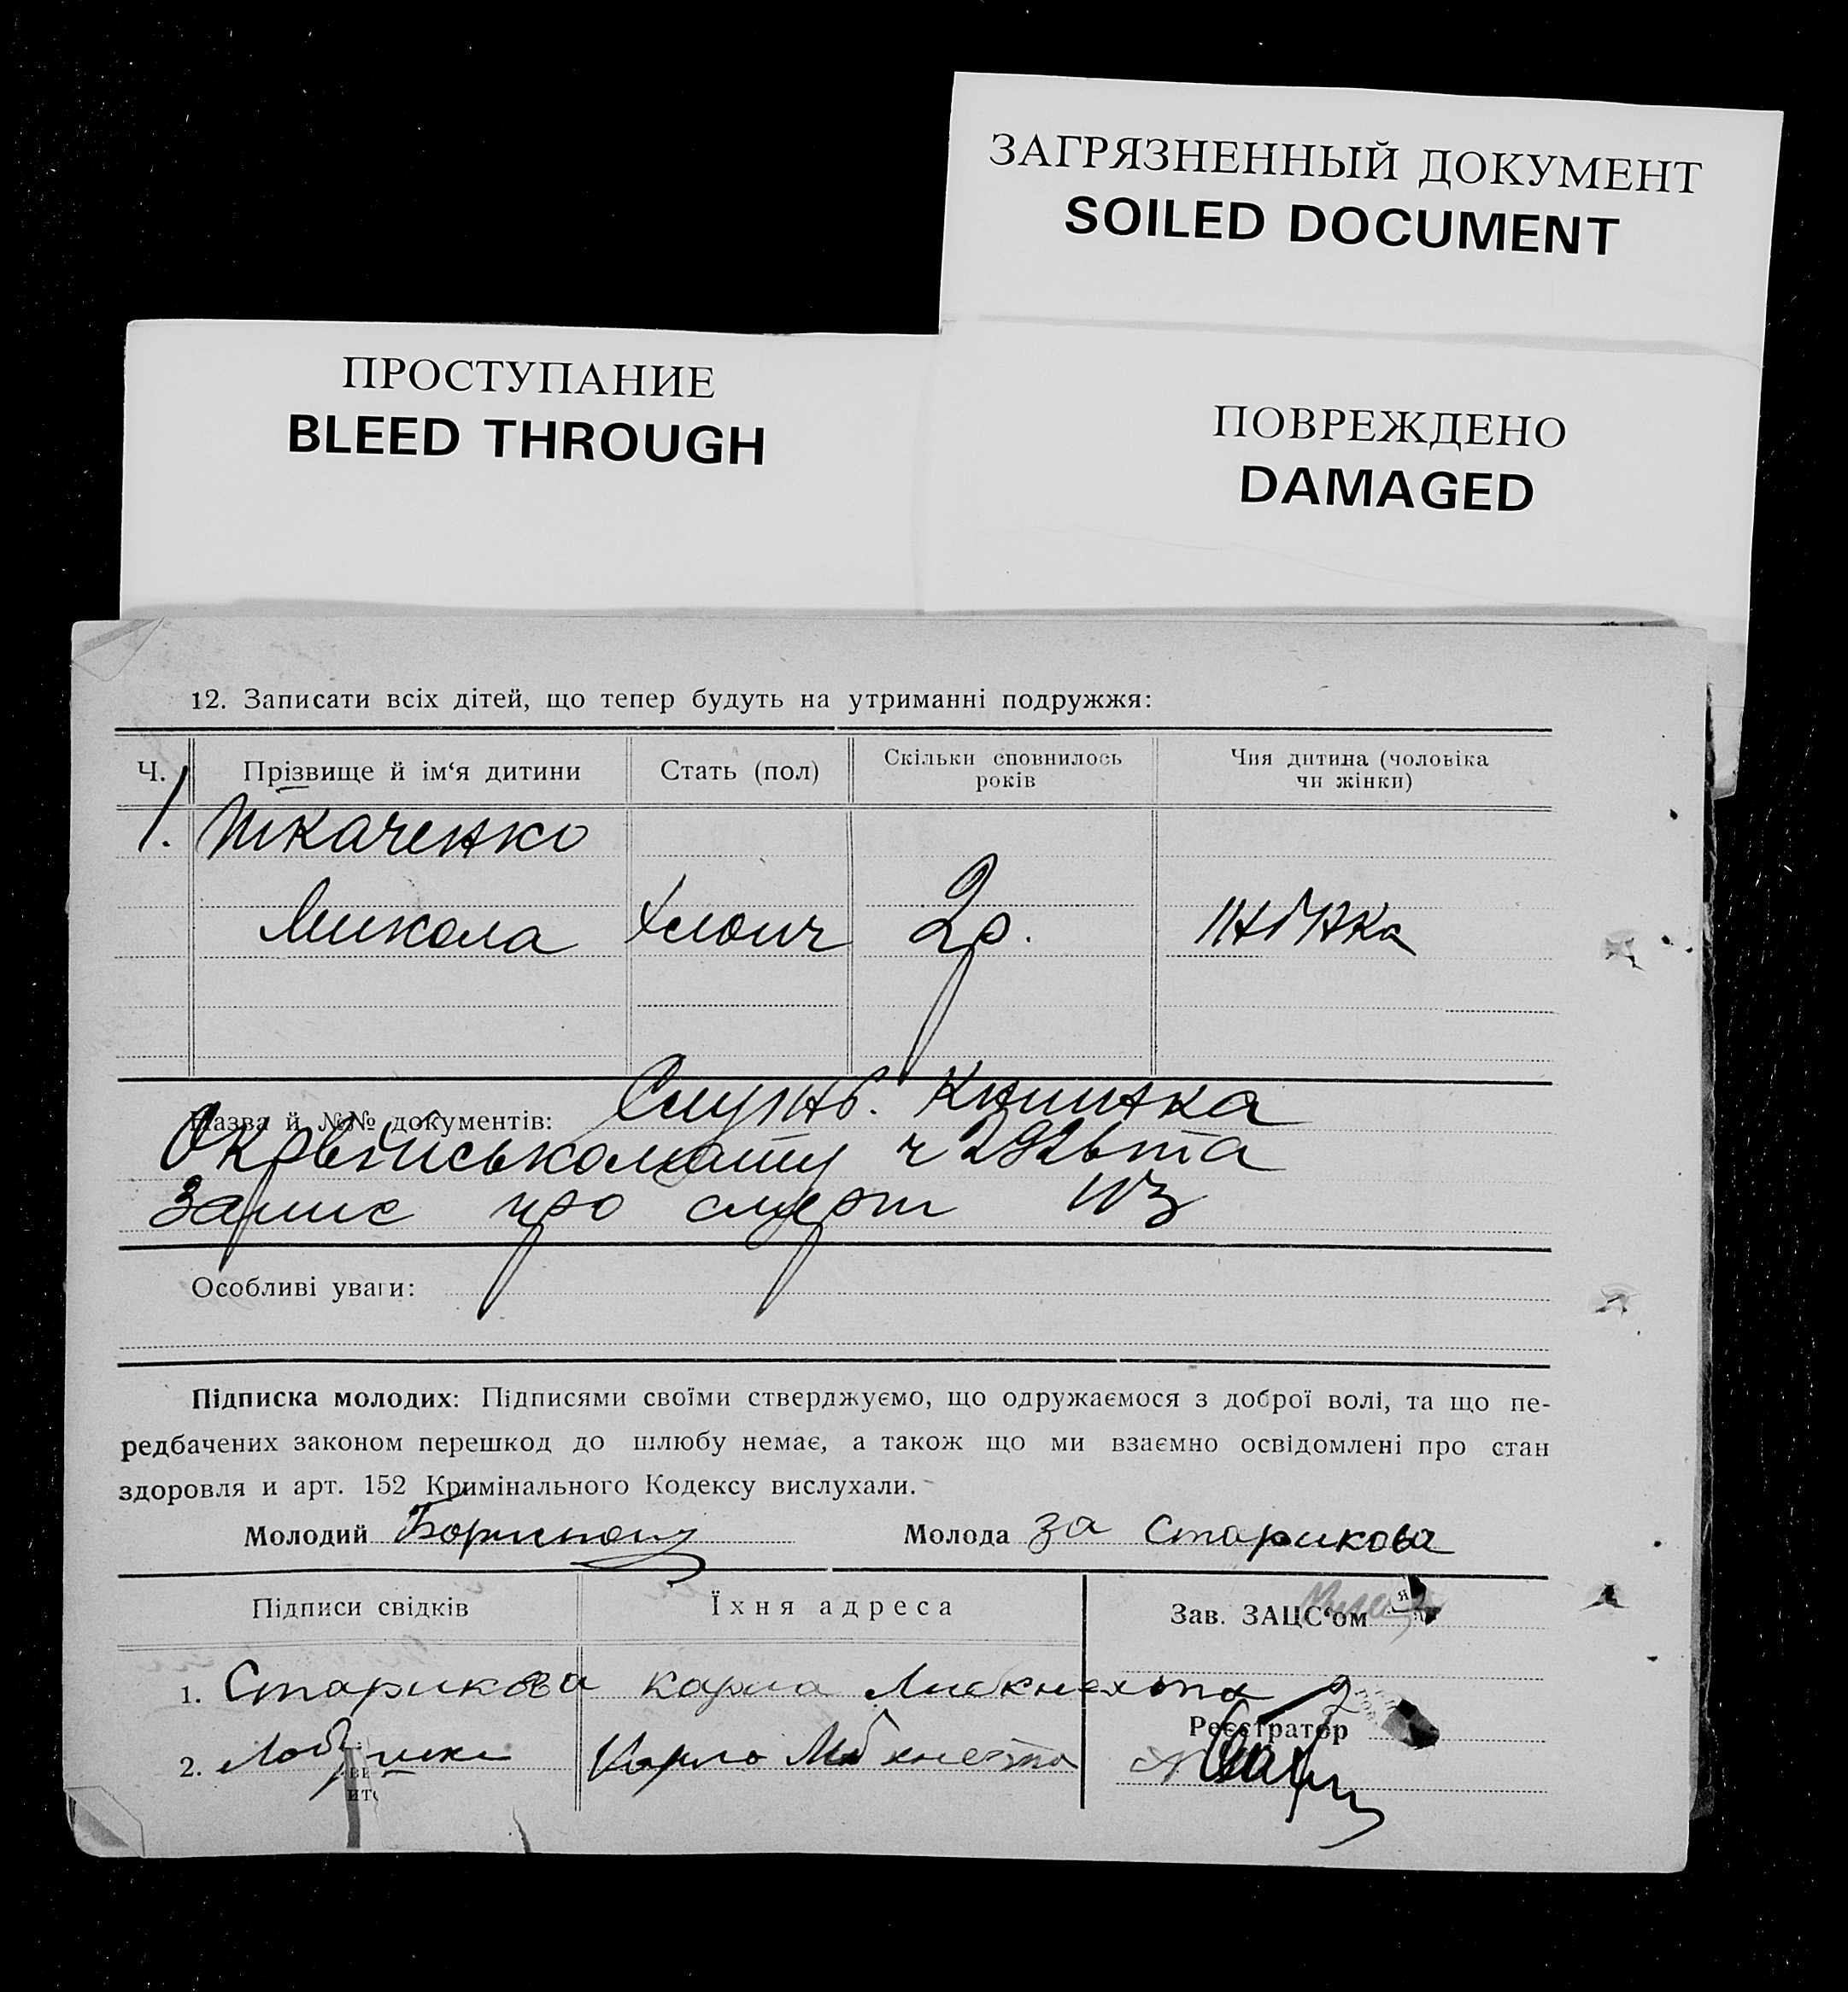 ЗАГРЯЗНЕННЫЙ ДОКУМЕНТ
SOILED DOCUMENT
ПРОСТУПАНИЕ
BLEED THROUGH
ПОВРЕЖДЕНО
DAMAGED
12. Записати всіх дітей, що тепер будуть на утриманні подружжя:
Ч. Прізвище й ім‘я дитини Стать (пол) Скільки сповнилось років Чия дитина (чоловіка чи жінки)
1. Ткаченко
Микола хлопч 2р.
Служб. Книжка
Назва й №№ документів:
Окрвійськомату ч
Запис про смерт
Особливі уваги:
Підписка молодих: Підписями своїми стверджуємо, що одружаємося з доброї волі, та що пе-
редбачених законом перешкод до шлюбу немає, а також що ми взаємно освідомлені про стан
здоровля и арт. 152 Кримінального Кодексу вислухали.
Молодий Молода за Старикова
Підписи свідків Їхня адреса Зав. ЗАЦС‘ом
1. Старикова Карла Либкнехта 2
Реєстратор
2. Карла